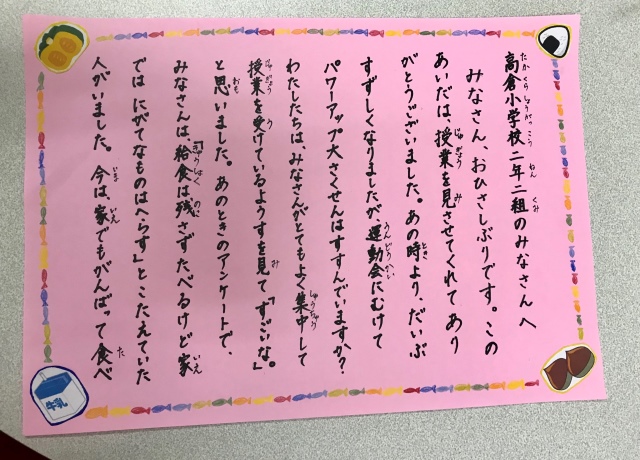 高倉小学校二年二組のみなさんへ
みなさん、おひさしぶりです。この
あいだは、授業を見させてくれてあり
がとうございました。あの時より、だいぶ
すずしくなりましたが、運動会にむけて
パワーアップ大さくせんはすすんでいますか？
わたしたちはみなさんがとてもよく集中して
授業を受けているようすを見て「すごいな。」
と思いました。あのときのアンケートで、
みなさんは、「給食は残さずたべるけど家
ではにがてなものはへらす」とこたえていた
人がいました。今は、家でもがんばって食べ
牛乳